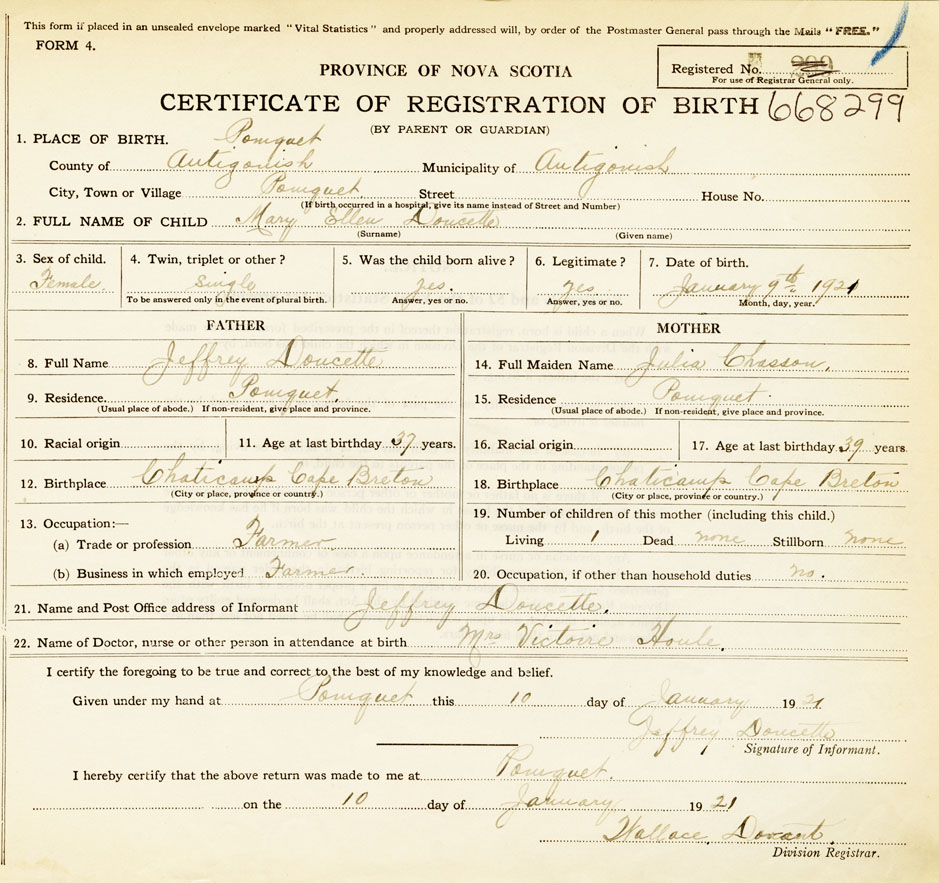 This form if placed in an unsealed envelope marked "Vital Statistics" and properly addressed will, by order of the Postmaster General pass through the Mails "FREE."
FORM 4.
Registered No.
For use of Registrar General only.
PROVINCE OF NOVA SCOTIA
CERTIFICATE OF REGISTRATION OF BIRTH 668299
(BY PARENT OR GUARDIAN)
1. PLACE OF BIRTH. Pomquet
County of Antigonish Municipality of Antigonish
City, Town or Village Pomquet Street House No.
(If birth occurred in a hospital, give its name instead of Street and Number)
2. FULL NAME OF CHILD Mary Ellen Doucette
(Surname) (Given name)
3. Sex of child. 4. Twin, triplet or other? 5. Was the child born alive? 6. Legitimate? 7. Date of birth.
Female. Single yes. yes January 9th 1921
To be answered only in the event of plural birth. Answer, yes or no. Answer, yes or no. Month, day, year.
FATHER MOTHER
8. Full Name Jeffrey Doucette 14. Full Maiden Name Julia Chasson.
9. Residence. Pomquet. 15. Residence Pomquet.
(Usual place of abode.) If non-resident, give place and province. (Usual place of abode.) If non-resident, give place and province.
10. Racial origin 11. Age at last birthday 37 years. 16. Racial origin 17. Age at last birthday 39 years.
12. Birthplace Chaticamp Cape Breton 18. Birthplace Chaticamp Cape Breton
(City or place, province or country.) (City or place, province or country.)
13. Occupation:— 19. Number of children of this mother (including this child.)
(a) Trade or profession Farmer Living 1 Dead none Stillborn none
(b) Business in which employed Farmer. 20. Occupation, if other than household duties no.
21. Name and Post Office address of Informant Jeffrey Doucette.
22. Name of Doctor, nurse or other person in attendance at birth Mrs Victoire Houle.
I certify the foregoing to be true and correct to the best of my knowledge and belief.
Given under my hand at Pomquet this 10 day of January 1921
Jeffrey Doucette
Signature of Informant.
I hereby certify that the above return was made to me at Pomquet.
on the 10 day of January 1921
Wallace
Division Registrar.